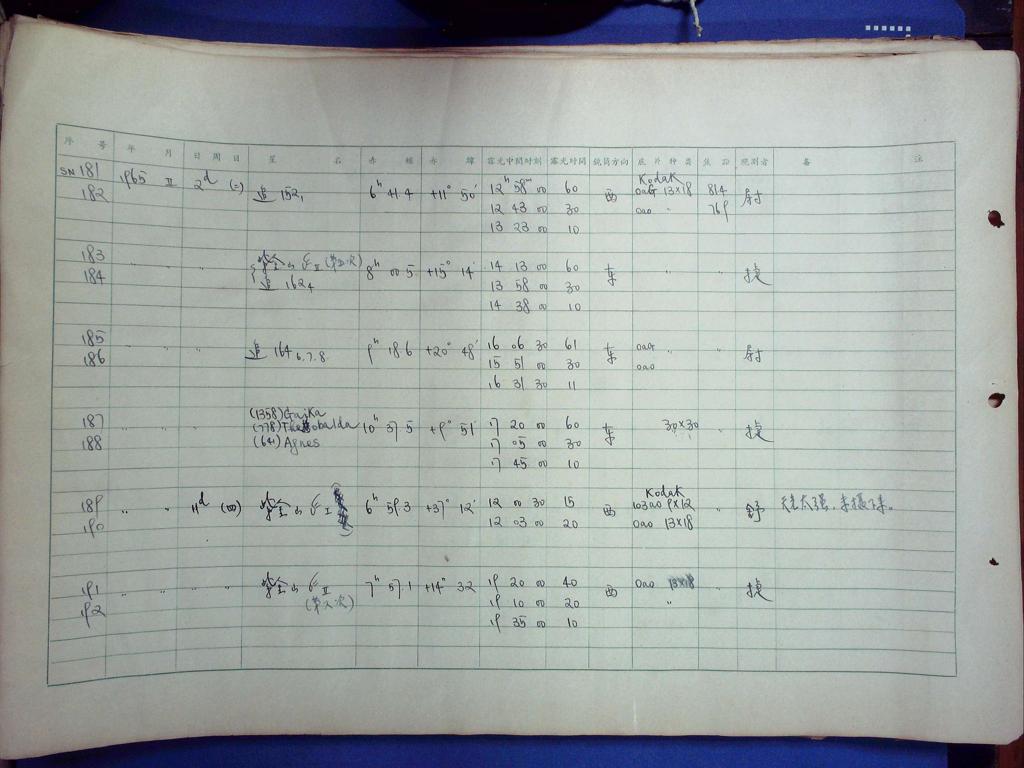 序 号 年 月 日 周日 星 名 赤 经 赤 纬 露光中间时刻 露光时间 镜筒方向 底片种类 焦距 观测者 备 注
SN 181 1965 II 2d (二) Kodak
182 追 152₁ 6h 41.4 +11° 50′ 12h 58m 00 60 西 oaG 13×18 814
12 43 00 30 oao " 769
13 23 00 10
183 " " 紫金山 II (第五次) 8h 00.5 +15° 14′ 14 13 00 60 东 " " 捷
184 追 162₄ 13 58 00 30
14 38 00 10
185 " " 追 164 6.7.8. 9h 18.6 +20° 48′ 16 06 30 61 东 oaG " "
186 15 51 00 30 oao
16 31 30 11
(1358) Gaika
187 " " " (778) Theobalda 10h 37.5 +9° 51′ 17 20 00 60 东 30×30 " 捷
188 (641) Agnes 17 05 00 30
17 45 00 10
Kodak
189 " " 11d (四) 紫金山 I 6h 59.3 +37° 12′ 12 00 30 15 西 103ao 9×12 " 舒 天光太强,未摄下来。
190 12 03 00 20 oao 13×18
191 " " " " 紫金山 II 7h 57.1 +14° 32 19 20 00 40 西 oao 13×18 " 捷
192 (第六次) 19 10 00 20 "
19 35 00 10